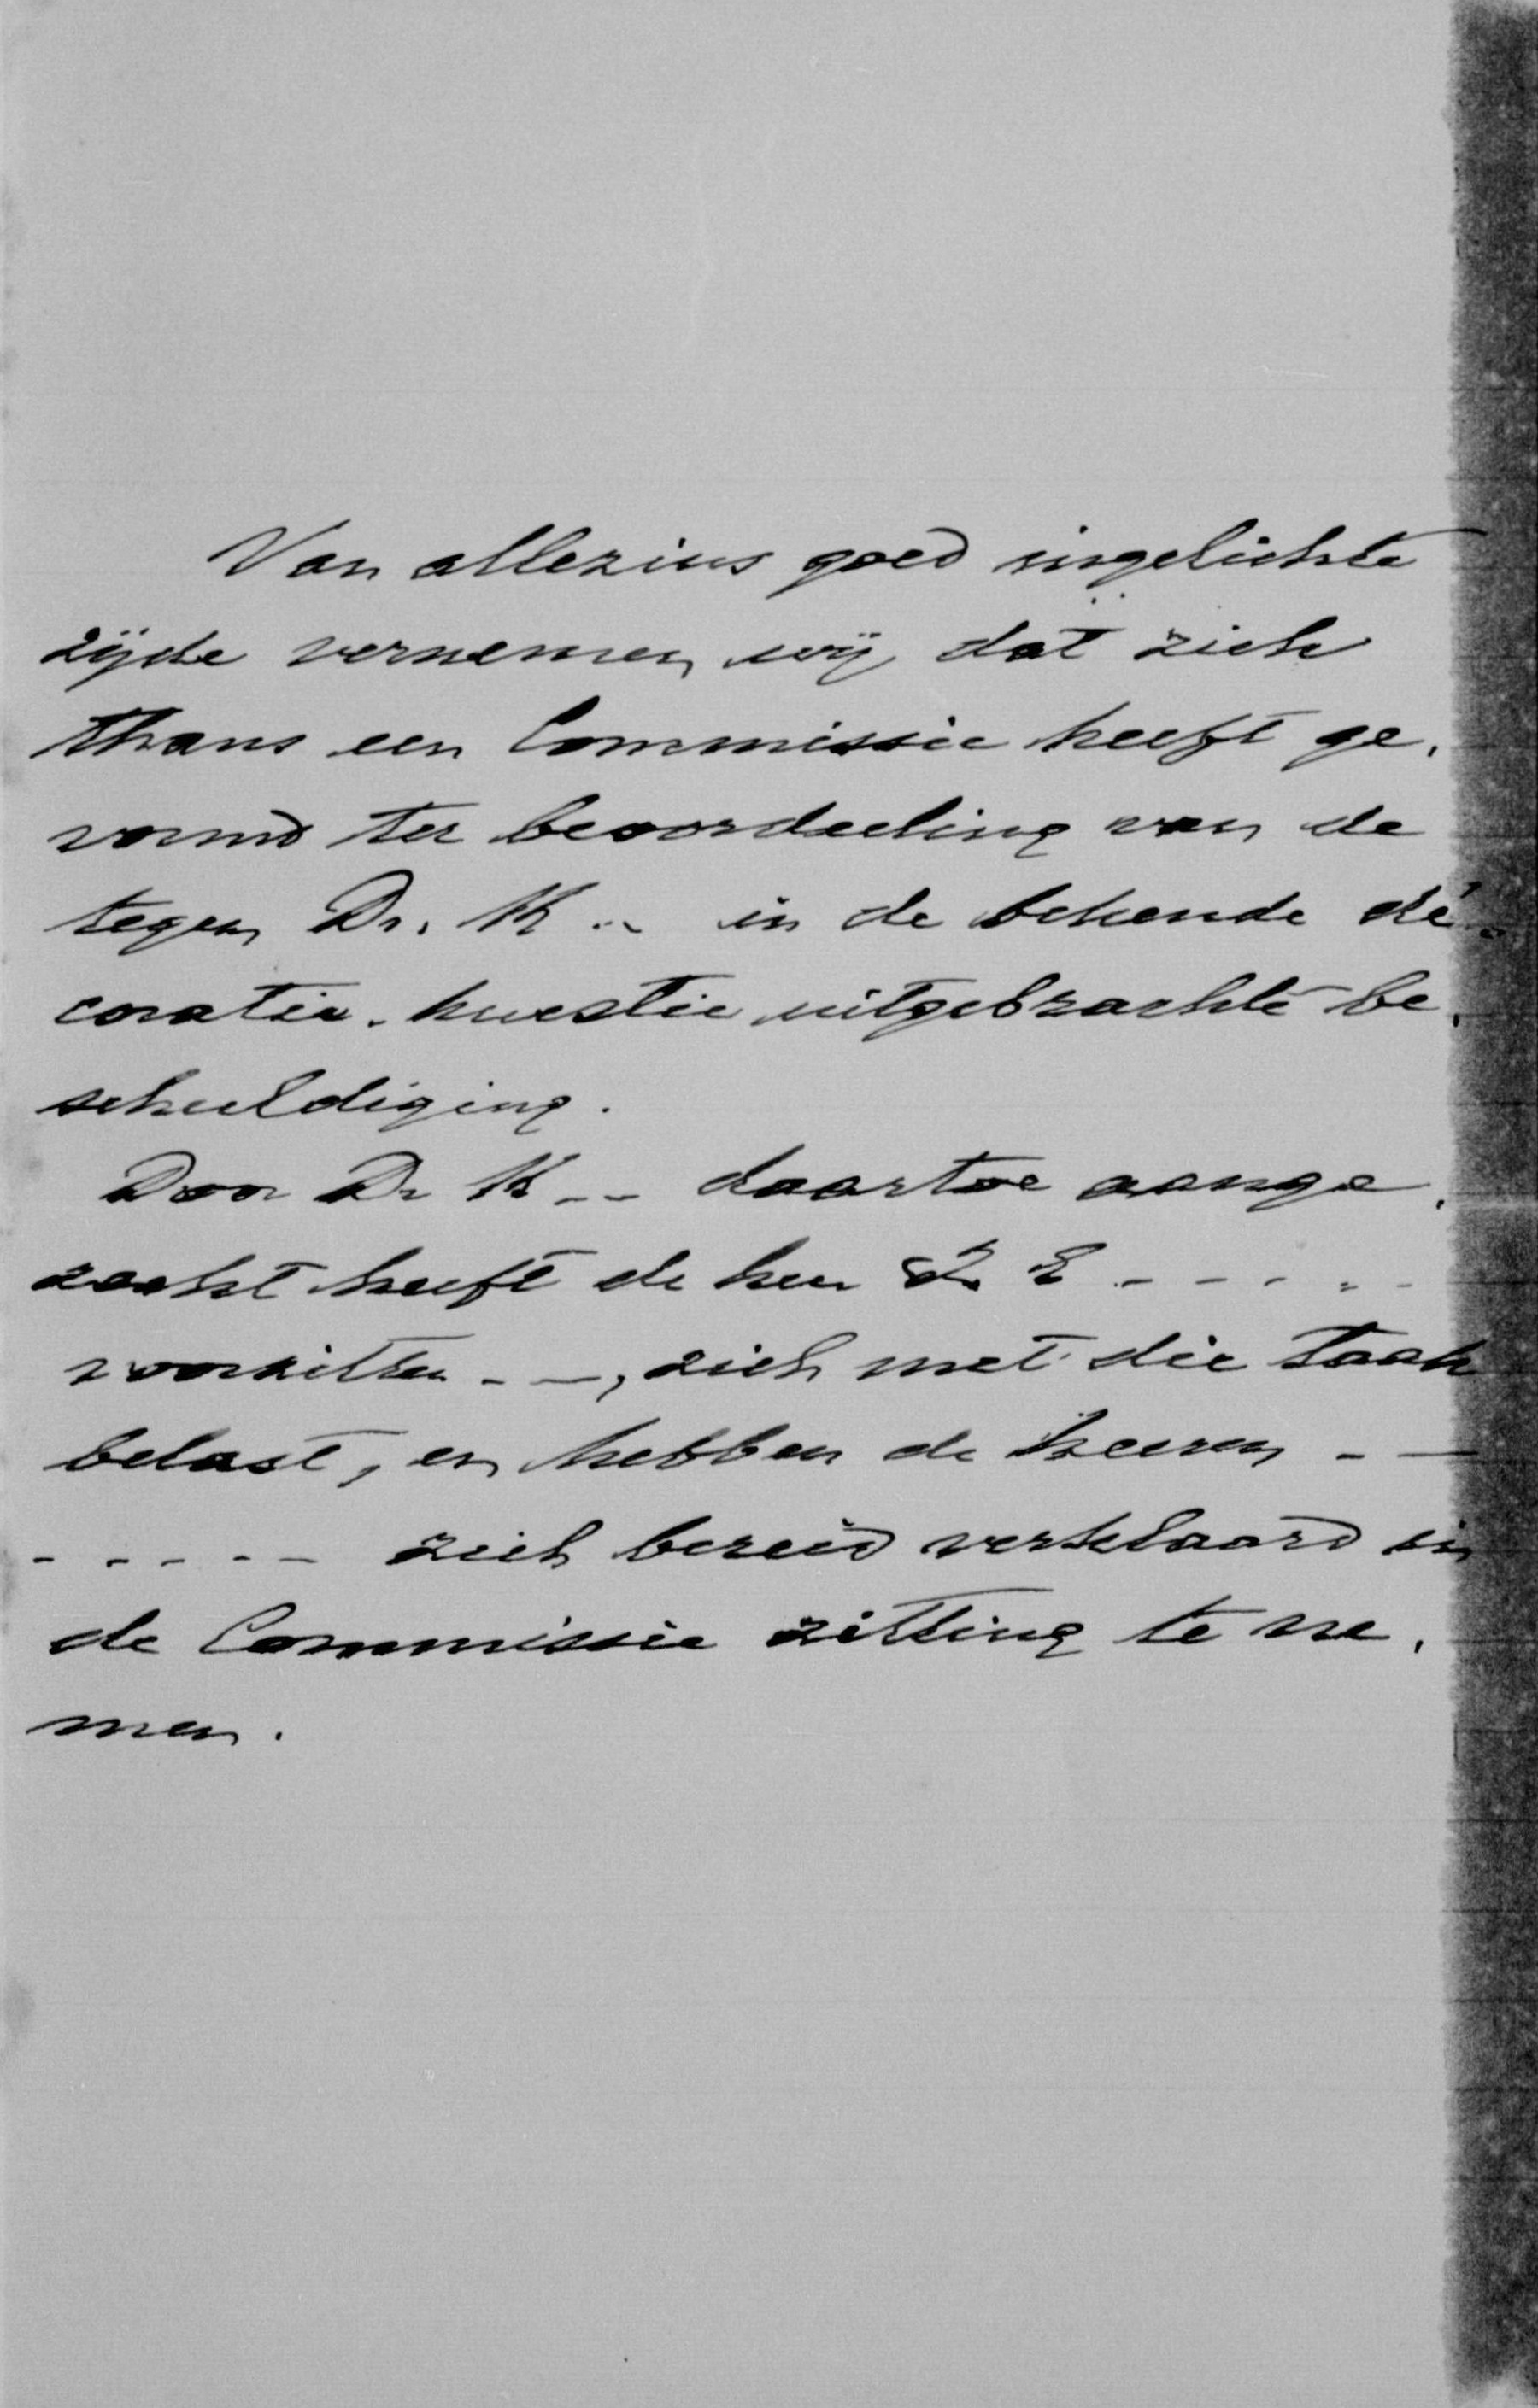 Van allezins goed ingelichte
zijde vernemen wij, dat zich
thans een Commissie heeft ge-
vormd ter beoordeeling van de
tegen Dr. K -- in de bekende dé-
coratie-kwestie uitgebrachte be-
schuldiging.
Door Dr K -- daartoe aange-
zocht heeft de heer - - - - -
voorzitter - -, zich met die taak
belast, en hebben de heeren - -
- - - - - zich bereid verklaard in
de Commissie zitting te ne-
men.